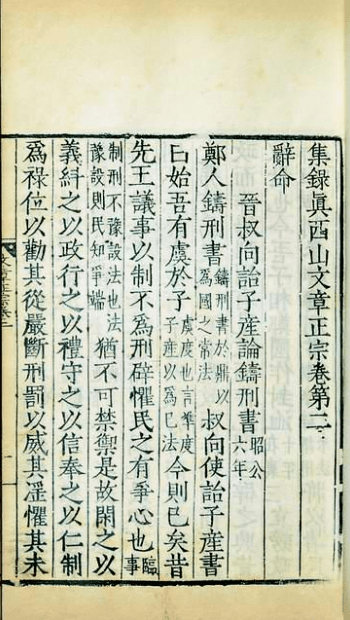 集錄眞西山文章正宗卷第三
辭命
晉叔向詒子產論鑄刑書昭公六年
鄭人鑄刑書鑄刑書於鼎以爲國之常法叔向使詒子產書
曰始吾有虞於子虞度也言準度子產以爲已法今則已矣昔
先王議事以制不爲刑辟懼民之有爭心也臨事
制刑不豫設法也法豫設則民知爭端猶不可禁禦是故閑之以
義糾之以政行之以禮守之以信奉之以仁制
爲祿位以勸其從嚴斷刑罰以威其淫懼其未